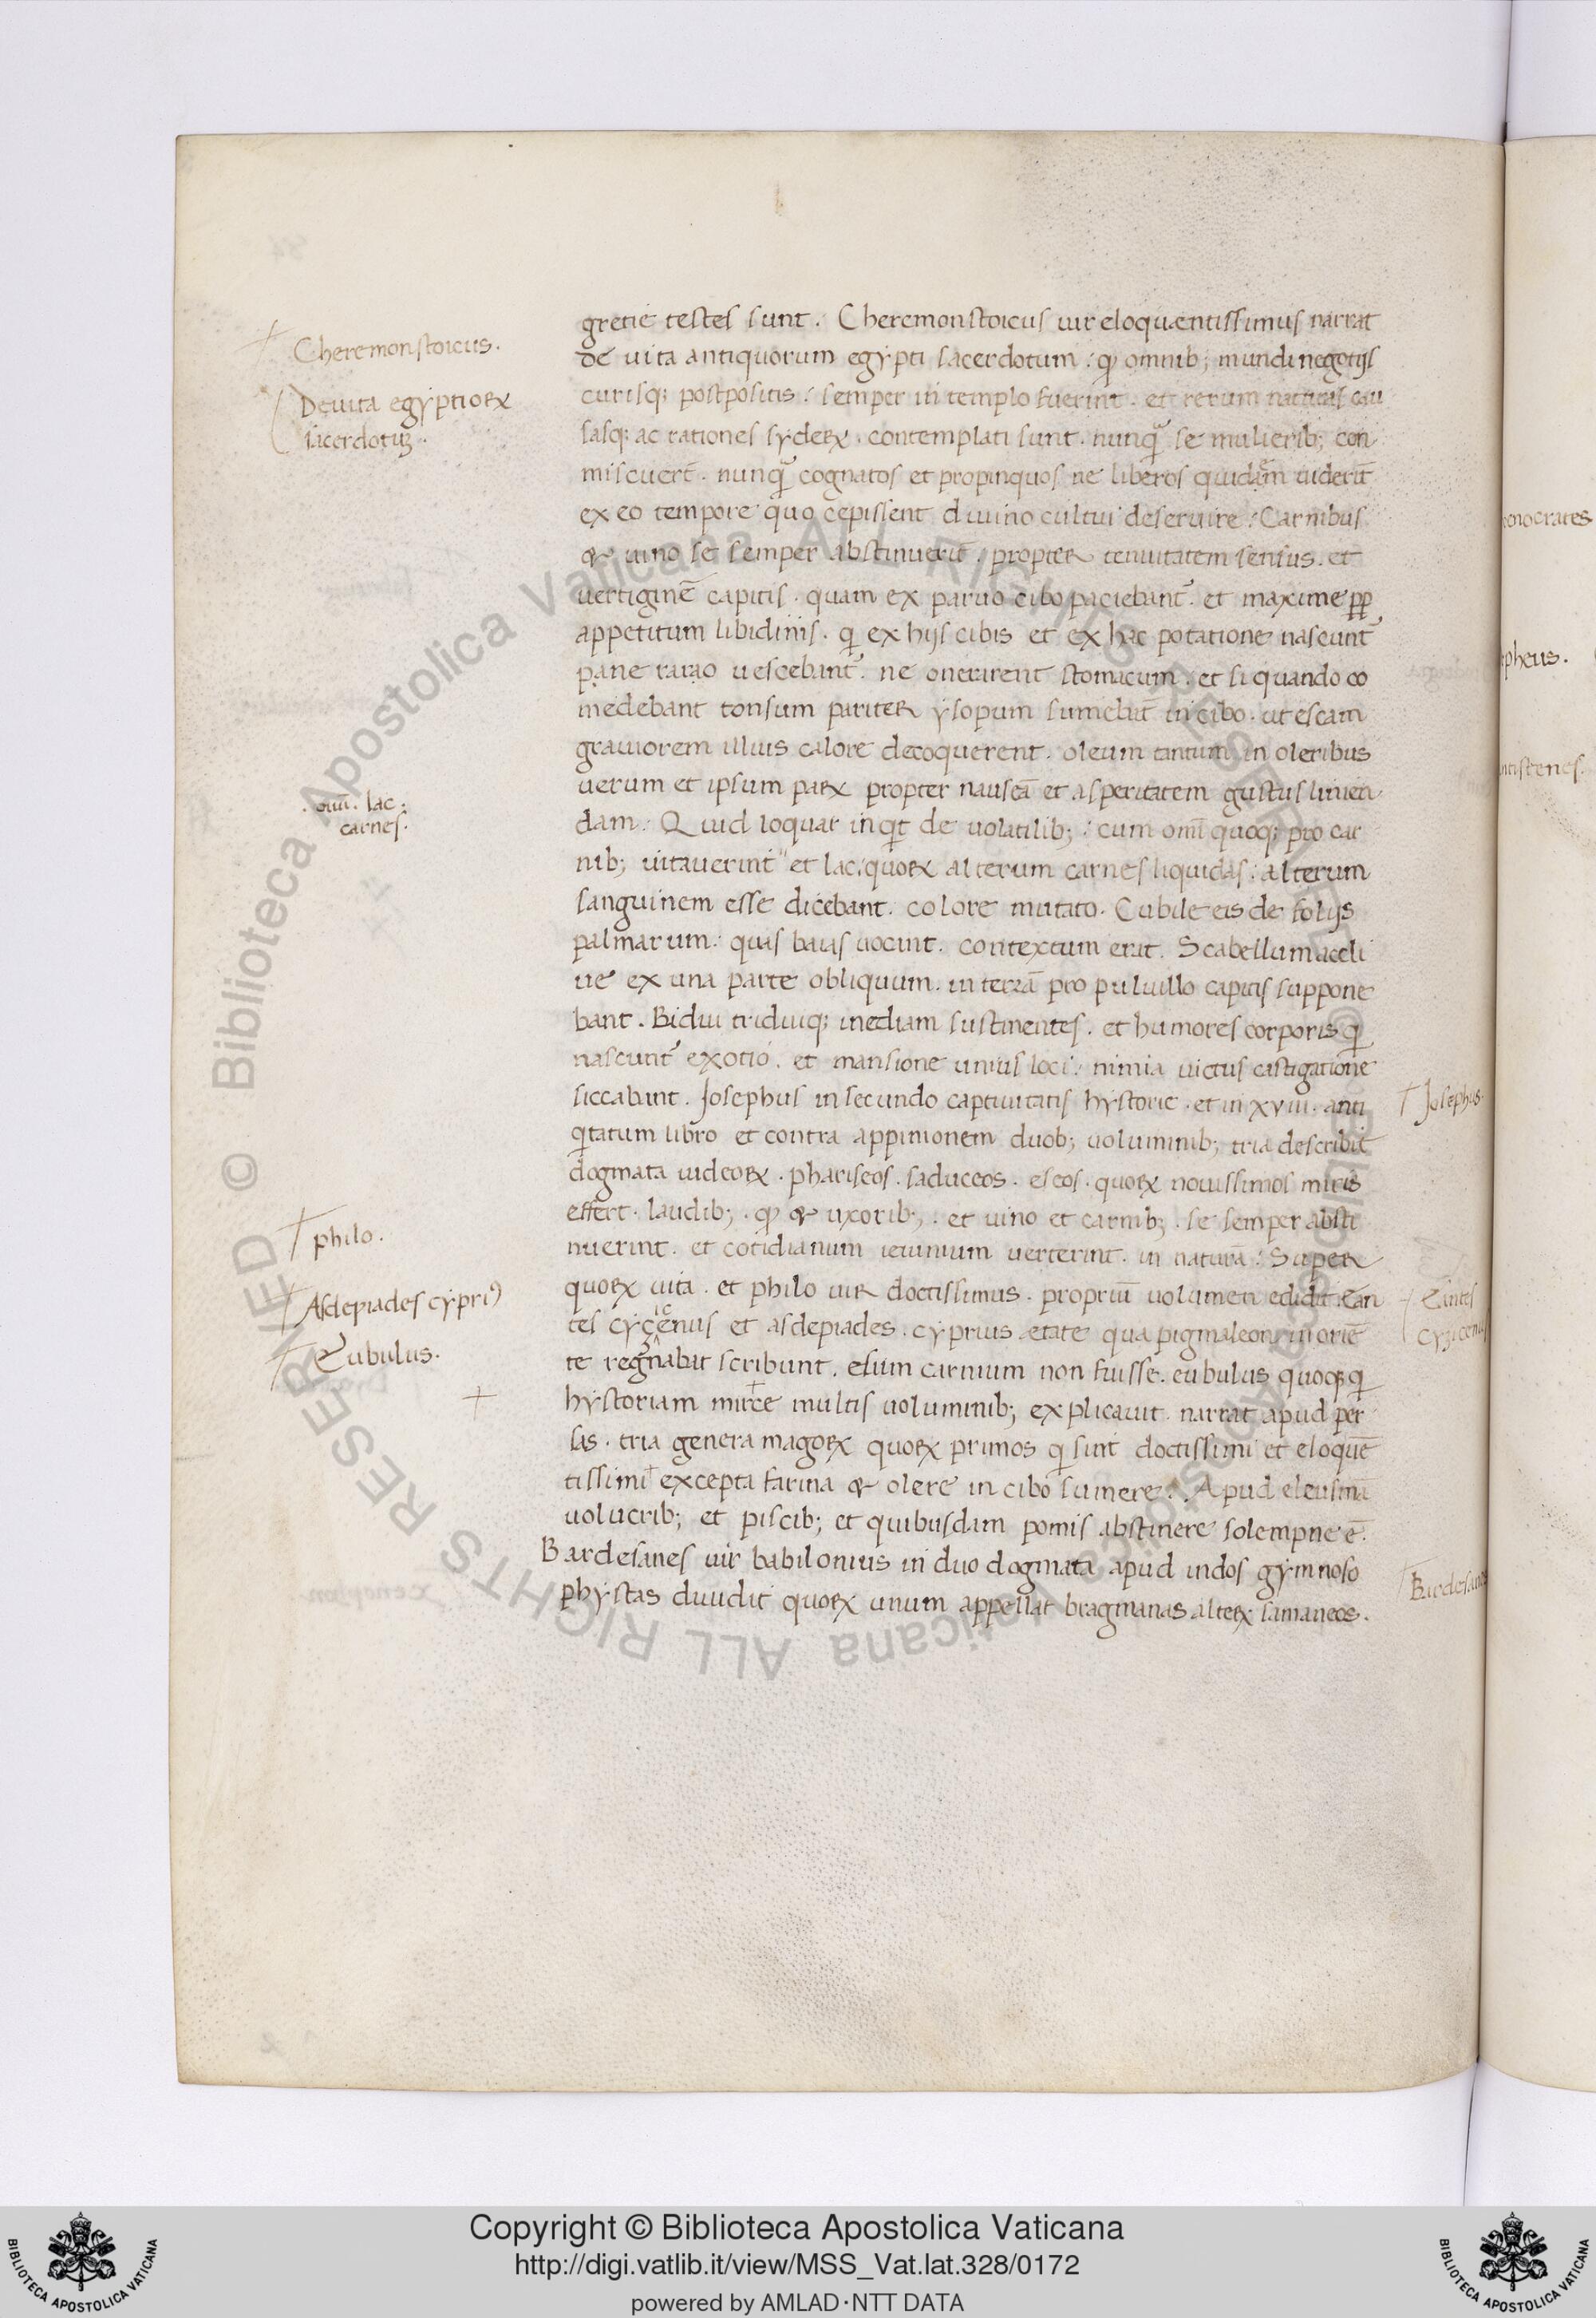 gretie testes sunt. Cheremonstoicus uir eloquentissimus narrat
de uita antiquorum egypti sacerdotum: qđ omnib; mundi negotijs
curisq; postpositis: semper in templo fuerint. et rerum naturas cau
sasq; ac rationes syderꝝ. contemplati sunt. nunqͣ se mulierib; con
miscuerī. nunqͣ cognatos et propinquos ne liberos quidem uiderīt
ex eo tempore quo cepissent diuino cultui deseruire: Carnibus
& uino se semper abstinuerīt. propter tenuitatem sensus. et
uertiginē capitis. quam ex paruo cibo paciebant̄. et maxime ꝓp
appetitum libidinis. q̄ ex hijs cibis et ex hac potatione nascunt̄
pane raro uescebant̄. ne onerarent stomacum. et si quando co
medebant tonsum pariter ysopum sumebāt in cibo. ut escam
grauiorem illius calore decoquerent. oleum tantum in oleribus
uerum et ipsum parꝝ propter nauseā et asperitatem gustus linien
dam. Quid loquar inqͥt de uolatilib;: cum omī quoq; pro car
nib; uitauerint et lac. quorꝝ alterum carnes liquidas: alterum
sanguinem esse dicebant. colore mutato. Cubile eis de folijs
palmarum: quas baias uocant. contextum erat. Scabellum accli
ue ex una parte obliquum. in terrā pro puluillo capitis suppone
bant. Bidui triduiq; inediam sustinentes. et humores corporis q̄
nascunt̄ ex otio. et mansione unius loci: nimia uictus castigatione
siccabant. Josephus in secundo captiuitatis hystorie. et in xviii. anti
qͥtatum libro et contra appinionem duob; uoluminib; tria describit
dogmata iudeorꝝ. phariseos. saduceos. eseos. quorꝝ nouissimos miris
effert. laudib;. qđ & uxorib;. et uino et carnib;. se semper absti
nuerint. et cotidianum ieiunium uerterint. in naturā: Super
quorꝝ uita. et philo uir doctissimus. propriū uolumen edidit. Ean
tes cyçenus et asclepiades. cyprius ætate qua pigmaleon in oriē
te regnabat scribunt. esum carnium non fuisse. eubulus quoq; q̄
hystoriam mitre multis uoluminib; explicauit. narrat apud per
sas. tria genera magorꝝ quorꝝ primos q̄ sunt doctissimi et eloquē
tissimi excepta farina & olere in cibo sumere. Apud eleusinā
uolucrib; et piscib; et quibusdam pomis abstinere solempne ē.
Bardesanes uir babilonius in duo dogmata apud indos gymnoso
phystas diuidit quorꝝ unum appellat bragmanas alterꝝ samaneos.
Cheremonstoicus.
De uita egyptiorꝝ
sacerdotuȝ.
ouū. lac:
carnes.
philo.
Asclepiades cypriꝰ
Eubulus.
Josephus.
Eantes
cyzicenus
Bardesanes
enocrates
pheus.
ntistenes.
Copyright © Biblioteca Apostolica Vaticana
http://digi.vatlib.it/view/MSS_Vat.lat.328/0172
powered by AMLAD·NTT DATA
BIBLIOTECA APOSTOLICA VATICANA
BIBLIOTECA APOSTOLICA VATICANA
© Biblioteca Apostolica Vaticana ALL RIGHTS RESERVED
© Biblioteca Apostolica Vaticana ALL RIGHTS RESERVED